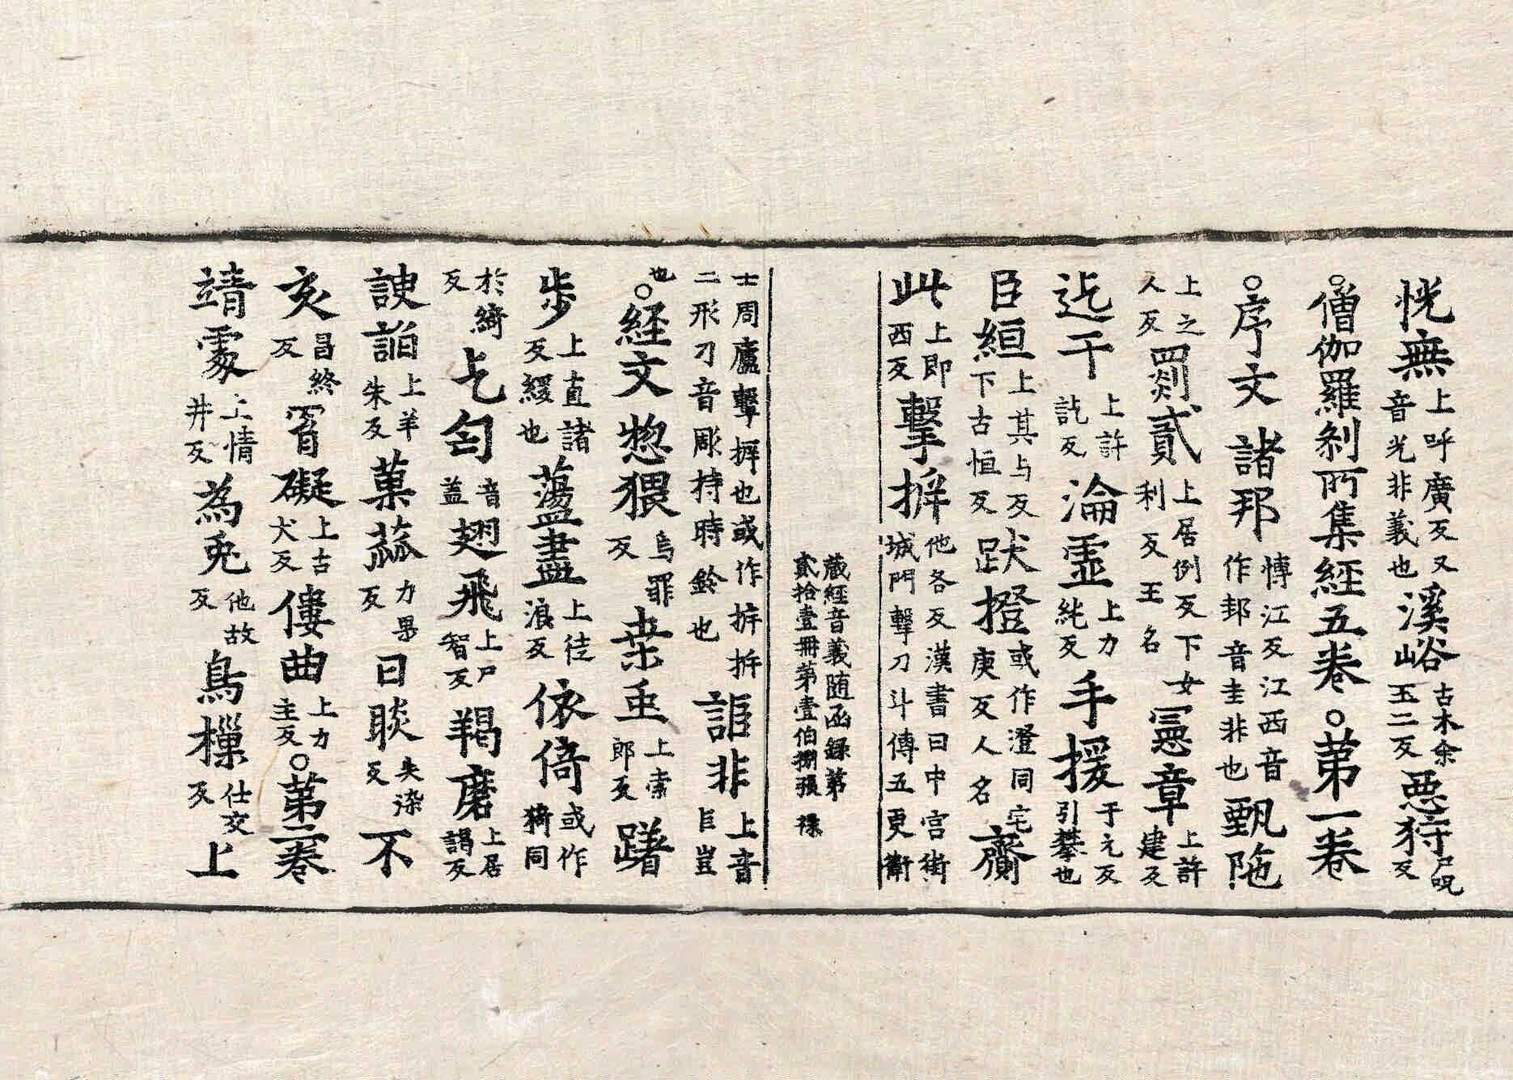 恍無上呼廣反又音光非義也溪峪古木余玉二反惡狩尸呪反
○僧伽羅剎所集經五卷○第一卷
○序文諸邦愽江反江西音作邽音圭非也甄陁
上之人反罽貳上居例反下女利反王名憲章上許建反
迄干上許訖反淪霊上力純反手援于元反引攀也
臣絙上其与反下古恒反趺撜或作澄同宅庚反人名齎
此上即西反擊㧸他各反漢書曰中宮衛城門擊刀斗傳五更衛
藏經音義随函録第
貳拾壹冊第壹伯捌張
士周廬擊㧸也或作拆二形刀音彫持時鈴也詎非上音巨豈
也○経文惣猥烏罪反桒垂上索郎反躇
步上直諸反緩也蕩盡上徒浪反依倚或作猗同
於綺反乞匃音盖翅飛上尸智反羯磨上居謁反
諛諂上羊朱反菓蓏力果反日睒失染反不
亥昌終反罥礙上古犬反僂曲上力主反○第二卷
靖霿上情井反為兎他故反鳥樔仕交反上